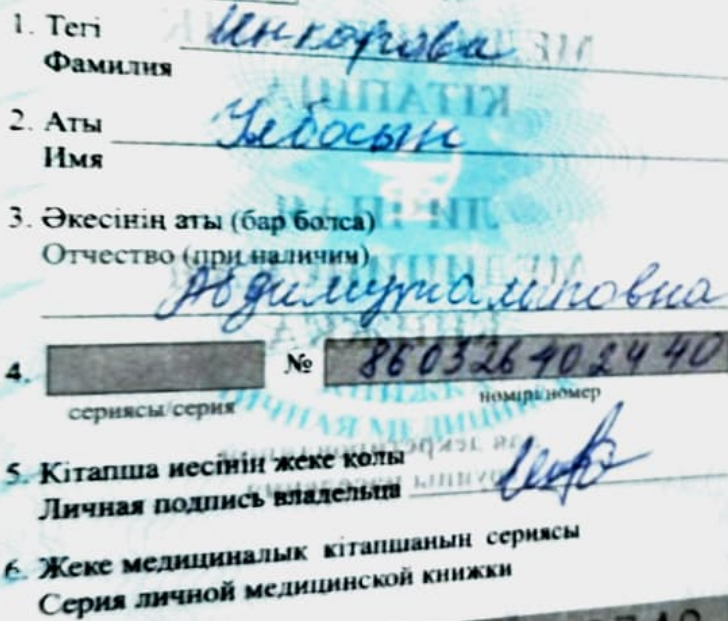 1. Тегі Инкарова
Фамилия
2. Аты Улбосын
Имя
3. Әкесінің аты (бар болса)
Отчество (при наличии)
4. № 860326402440
сериясы/серия нөмірі/номер
5. Кітапша иесінің жеке қолы
Личная подпись владельца
6. Жеке медициналық кітапшаның сериясы
Серия личной медицинской книжки